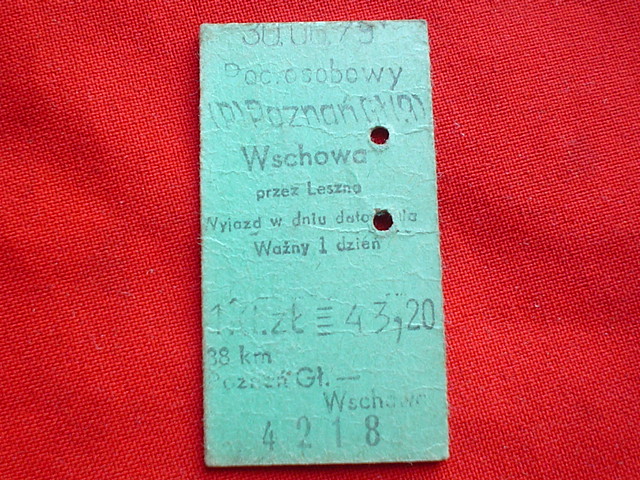 30.06.79
Poc.osobowy
(P) Poznań Gł (P)
Wschowa
przez Leszno
Wyjazd w dniu datownika
Ważny 1 dzień
1 kl.zł ≡ 43,20
38 km
Poznań Gł. —
Wschowa
4218